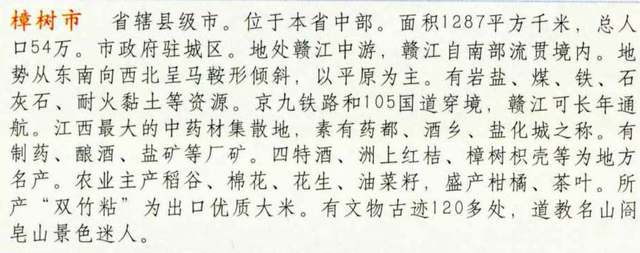 樟树市 省辖县级市。位于本省中部。面积1287平方千米，总人
口54万。市政府驻城区。地处赣江中游，赣江自南部流贯境内。地
势从东南向西北呈马鞍形倾斜，以平原为主。有岩盐、煤、铁、石
灰石、耐火黏土等资源。京九铁路和105国道穿境，赣江可长年通
航。江西最大的中药材集散地，素有药都、酒乡、盐化城之称。有
制药、酿酒、盐矿等厂矿。四特酒、洲上红桔、樟树枳壳等为地方
名产。农业主产稻谷、棉花、花生、油菜籽，盛产柑橘、茶叶。所
产“双竹粘”为出口优质大米。有文物古迹120多处，道教名山阎
皂山景色迷人。